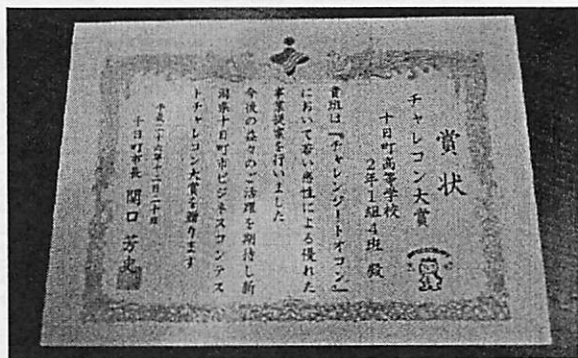 賞状
チャレコン大賞
十日町高等学校
2年1組4班 殿
貴班は『チャレンジートオコン』
において若い感性による優れた
事業提案を行いました
今後の益々のご活躍を期待し新
潟県十日町市ビジネスコンテス
トチャレコン大賞を贈ります
平成二十六年十二月二十日
十日町市長 関口 芳史